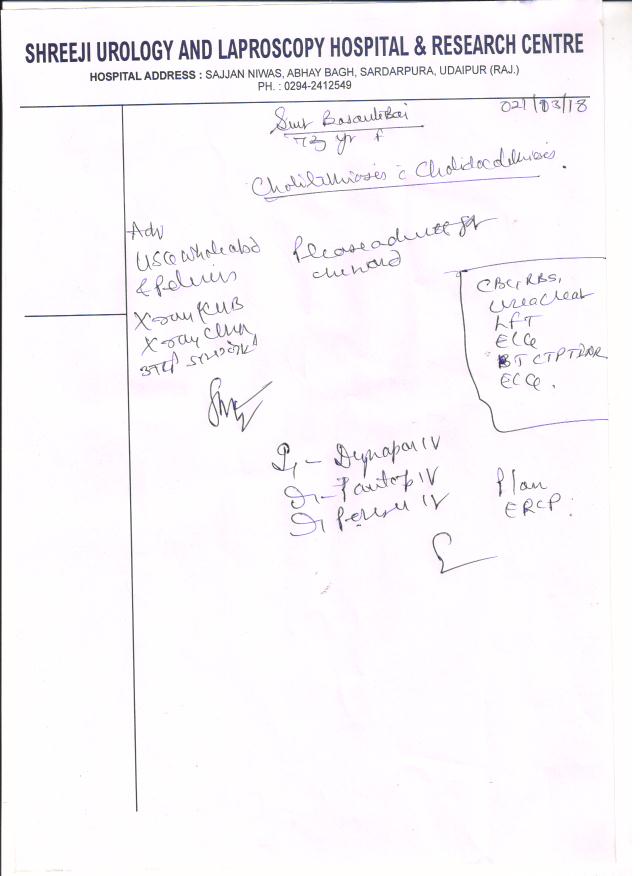 SHREEJI UROLOGY AND LAPROSCOPY HOSPITAL & RESEARCH CENTRE
HOSPITAL ADDRESS : SAJJAN NIWAS, ABHAY BAGH, SARDARPURA, UDAIPUR (RAJ.)
PH. : 0294-2412549
02/03/18
Smt Basantibai
73 yr f
Cholilithiosis c Cholidocolithiosis.
Adv
USG whole abd
& pelvis
Please admit
X-ray KUB
X-ray
CBC, RBS,
Urea Creat
LFT
ECG
BT CT PT INR
ECG.
Dynapar IV
Pantop IV
IV
Plan
ERCP.